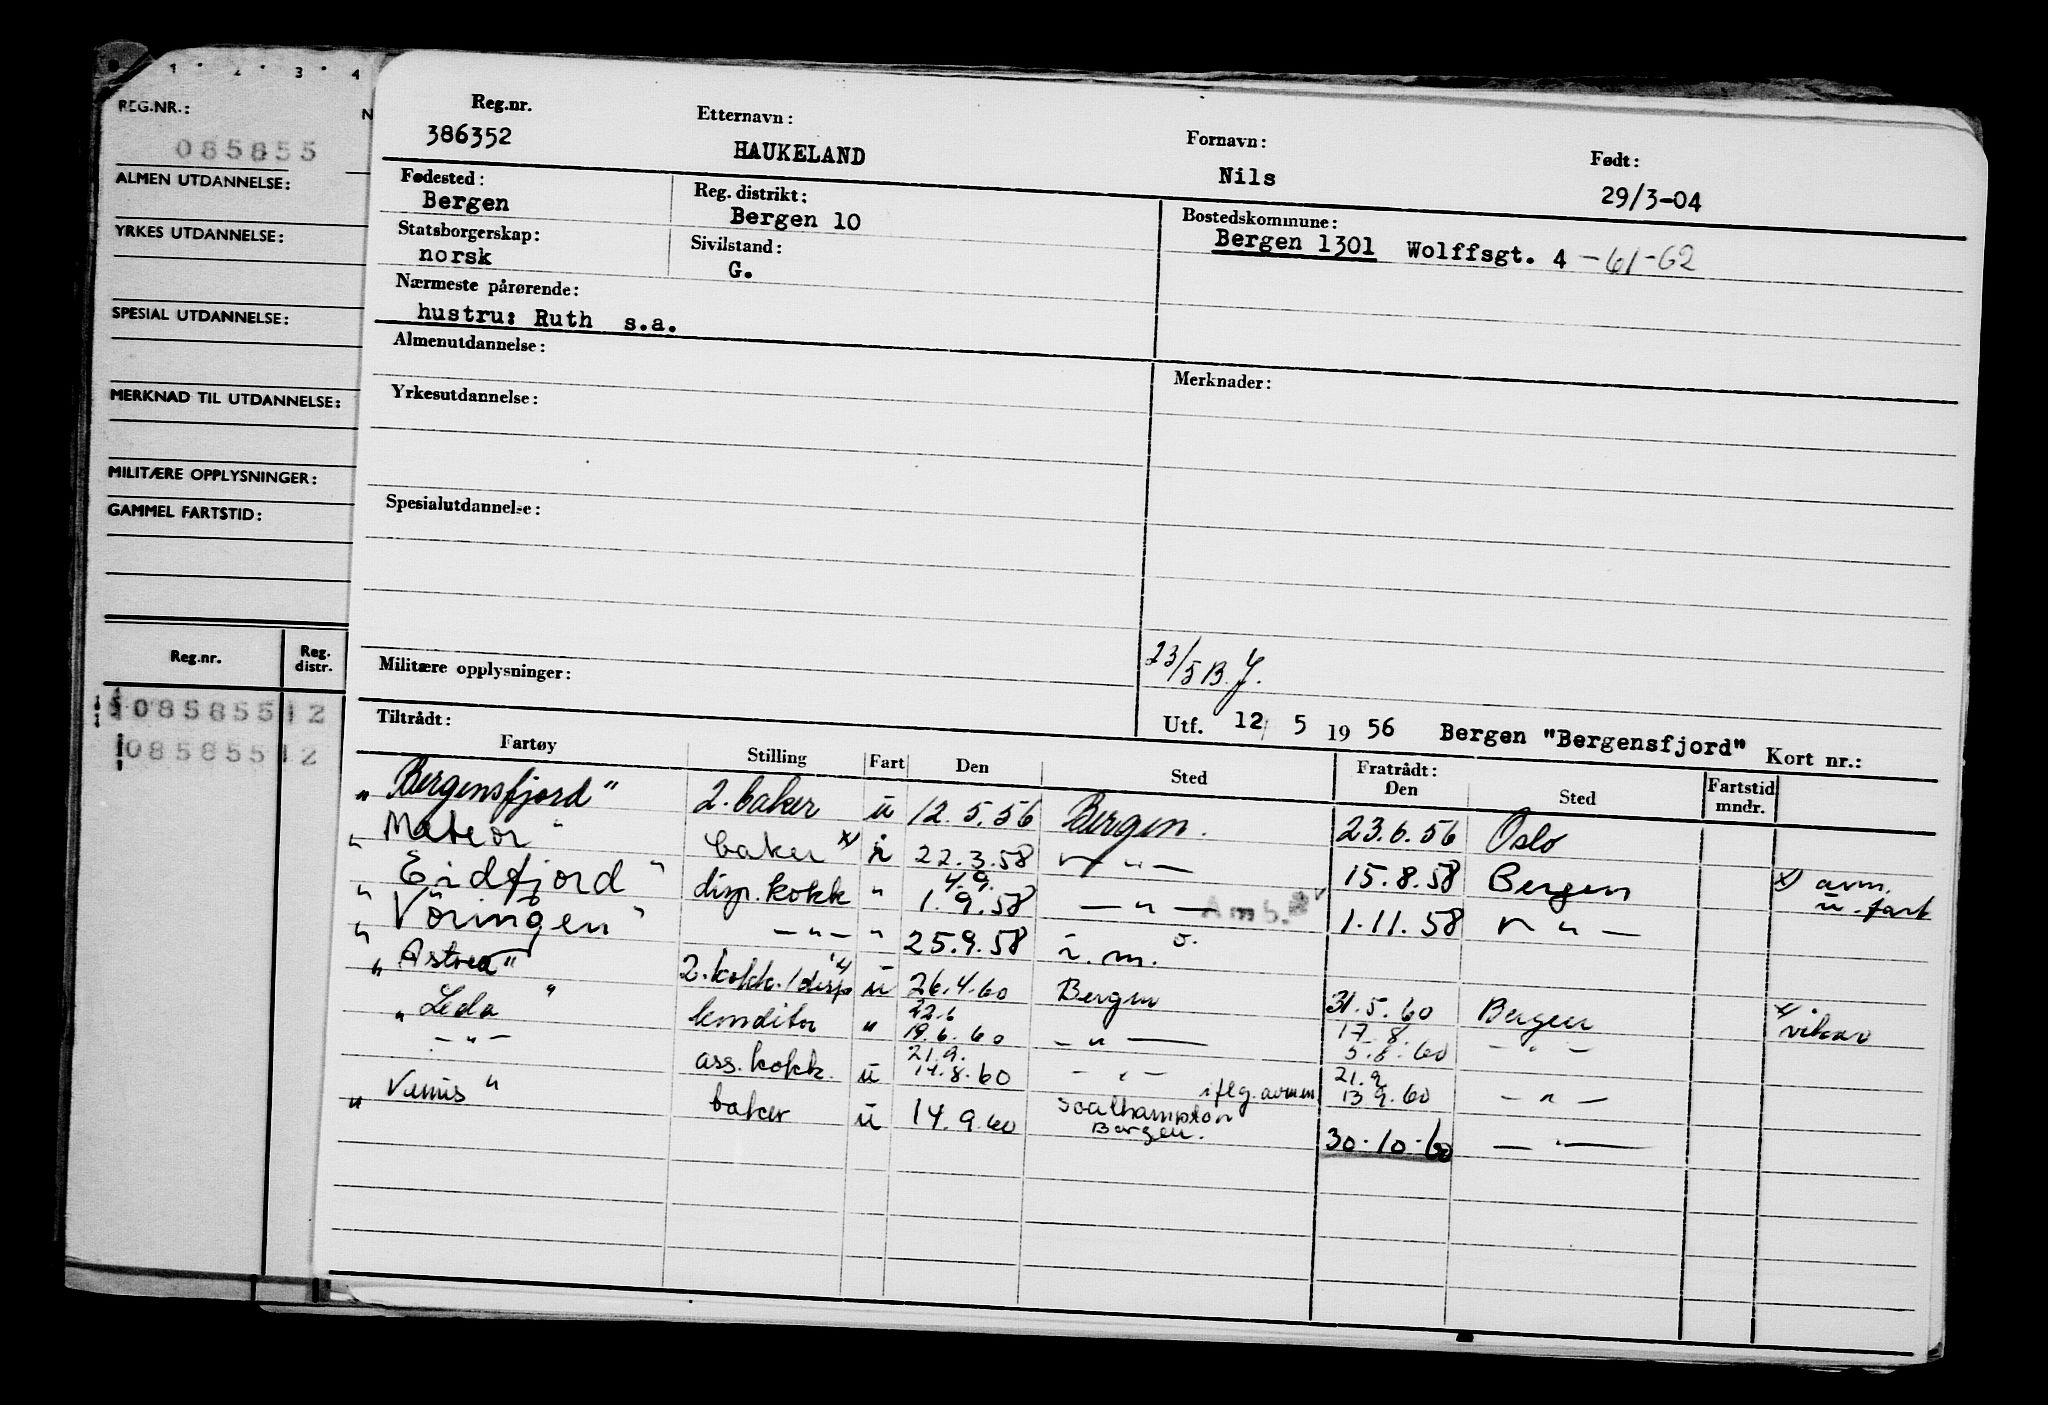 1 2 3 4
REG.NR.: N
085855
ALMEN UTDANNELSE:
YRKES UTDANNELSE:
SPESIAL UTDANNELSE:
MERKNAD TIL UTDANNELSE:
MILITÆRE OPPLYSNINGER:
GAMMEL FARTSTID:
Reg.nr. Reg. distr.
085855 12
085855 12
Reg.nr. Etternavn: Fornavn: Født:
386352 HAUKELAND Nils 29/3-04
Fødested: Reg. distrikt: Bostedskommune:
Bergen Bergen 10 Bergen 1301 Wolffsgt. 4 - 61-62
Statsborgerskap: Sivilstand:
norsk G.
Nærmeste pårørende:
hustru: Ruth s.a.
Almenutdannelse: Merknader:
Yrkesutdannelse:
Spesialutdannelse:
Militære opplysninger: 23/5 B.J.
Tiltrådt: Utf. 12/ 5 19 56 Bergen "Bergensfjord" Kort nr.:
Fartøy Stilling Fart Den Sted Fratrådt: Den Sted Fartstid mndr.
" Bergensfjord " 2. baker u 12.5.56 Bergen. 23.6.56 Oslo
" Meteor " baker x) i 22.3.58 — " — 15.8.58 Bergen x) avm. u. fart
" Eidfjord " disp. kokk " 4.9. 1.9.58 — " — Amb. 1.11.58 — " —
" Vöringen " — " — " 25.9.58 i.m.
" Astrea " 2. kokk/disp u 26.4.60 Bergen 31.5.60 Bergen x) vikar
" Leda " konditor " 22.6 19.6.60 — " — 17.8 5.8.60 — " —
— " — ass. kokk. u 21.9. 14.8.60 — " — 21.9 13.9.60 — " —
" Venus " baker u 14.9.60 Southampton iflg. avmøn Bergen. 30.10.60 — " —